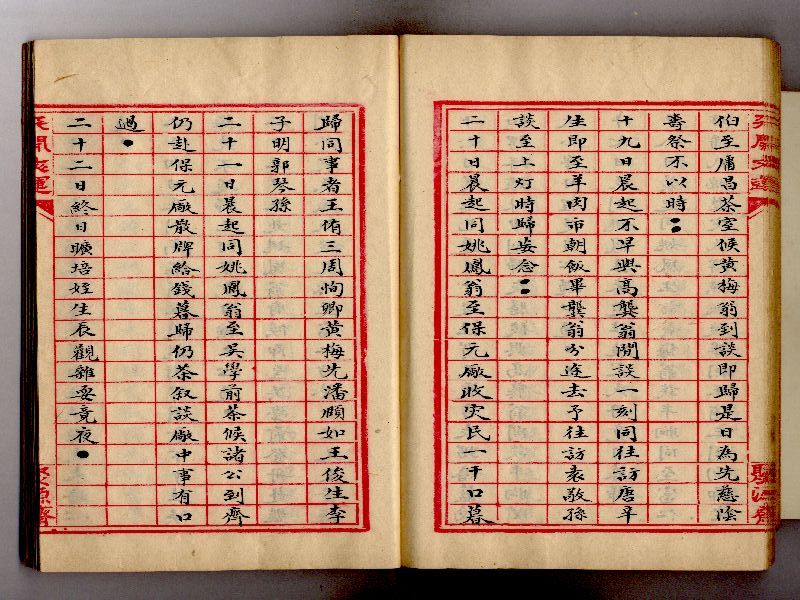 伯至廣昌茶室候黃梅翁到談即歸是日為先慈陰
壽祭不以時
十九日晨起不早與高龔翁閒談一刻同往訪唐辛
生即至羊肉市朝飯畢龔翁分途去予往訪袁敬孫
談至上灯時歸妄念
二十日晨起同姚鳳翁至保元廠收灾民一千口暮
歸同事者王侑三周恂卿黃梅先潘頋如王俊生李
子明郭琴孫
二十一日晨起同姚鳳翁至吳學前茶候諸公到齊
仍赴保元廠散牌給錢暮歸仍茶叙談廠中事有口
過
二十二日終日曠培姪生辰觀雜耍竟夜
天開文運
聚源齋